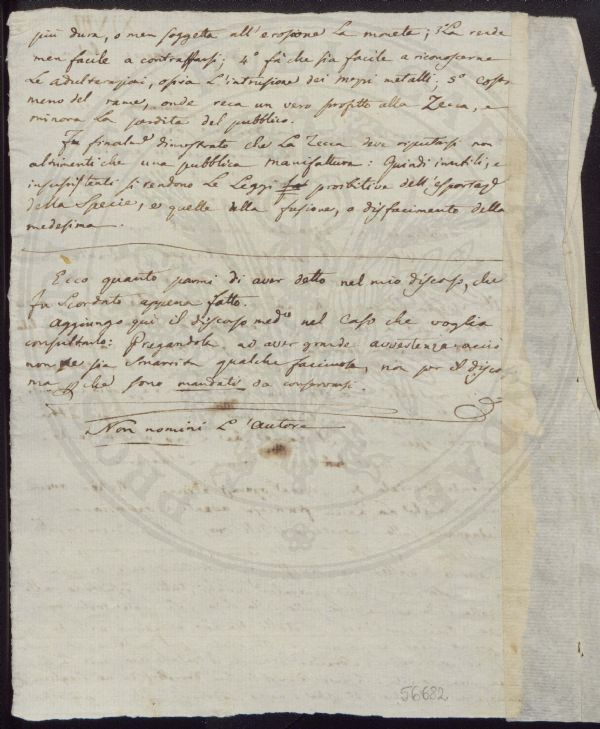 più dura, o men soggetta all'erosione la moneta; 3º La rende
men facile a contraffarsi; 4º fà che sia facile a riconoscerne
le adulterazioni, ossia l'intrusione dei metalli; 5º costar
meno del rame, onde reca un vero profitto alla Zecca, e
minora la perdita del pubblico.
Fu finalmᵉ dimostrato che la Zecca deve riputarsi non
altrimenti che una pubblica manifattura: Quindi inutili, e
insussistenti si rendono le Leggi proibitive dell'esportazᵉ
della Specie, e quelle sulla fusione, o disfacimento della
medesima.
Ecco quanto parmi di aver detto nel mio discorso, che
fu scordato appena fatto.
Aggiungo qui il discorso medᵐᵒ nel caso che voglia
consultarlo: Pregandola ad aver grande avvertenza acciò
non se sia smarrita qualche facciuola, non per il discorso
ma che sono mandati da conservarsi.
Non nomini l'autore
56682